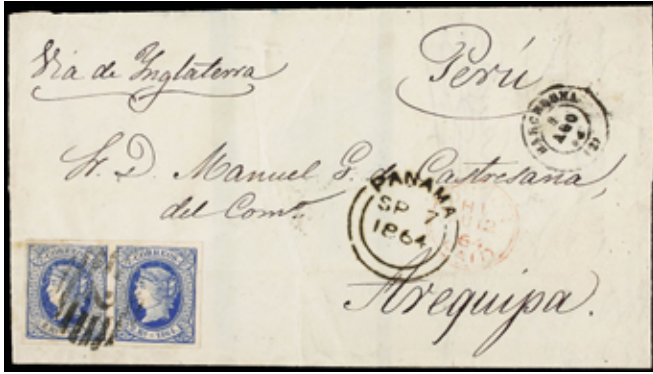 Via de Inglaterra
Perú
BARCELONA
AGO
(2)
Sr. D. Manuel G. de Castresana,
del Como
PANAMA
SP 7
1864
PAID
Arequipa.
CORREOS CORREOS
1864